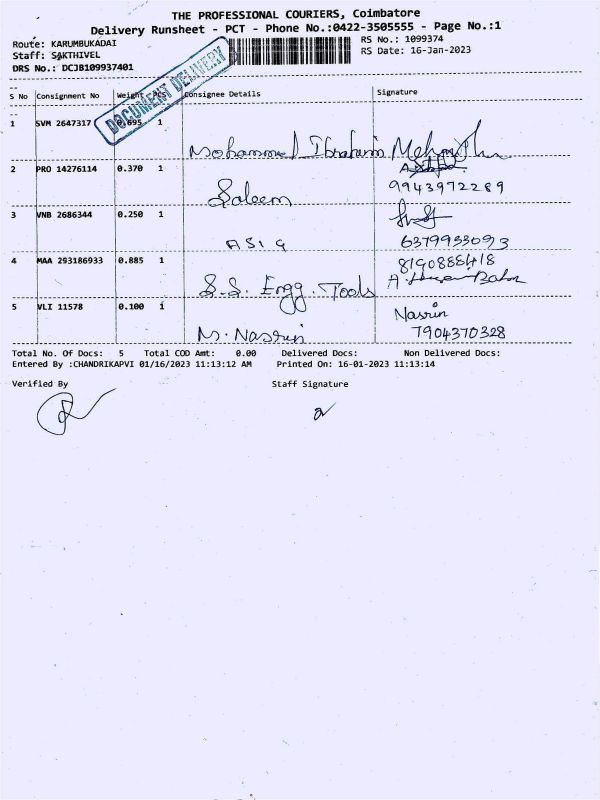 THE PROFESSIONAL COURIERS, Coimbatore
Delivery Runsheet - PCT - Phone No.:0422-3505555 - Page No.:1
Route: KARUMBUKADAI
RS No.: 1099374
Staff: SAKTHIVEL
RS Date: 16-Jan-2023
DRS No.: DCJB109937401
DOCUMENT DELIVERY
S No Consignment No Weight PCS Consignee Details Signature
1 SVM 2647317 0.695 1
Mohammed Ibrahim
2 PRO 14276114 0.370 1
Saleem 9943972289
3 VNB 2686344 0.250 1
ASIQ 6379933093
4 MAA 293186933 0.885 1 8190888418
S.S. Engg. Tools
5 VLI 11578 0.100 1 Nasrin
M. Nasrin 7904370328
Total No. Of Docs: 5 Total COD Amt: 0.00 Delivered Docs: Non Delivered Docs:
Entered By :CHANDRIKAPVI 01/16/2023 11:13:12 AM Printed On: 16-01-2023 11:13:14
Verified By Staff Signature